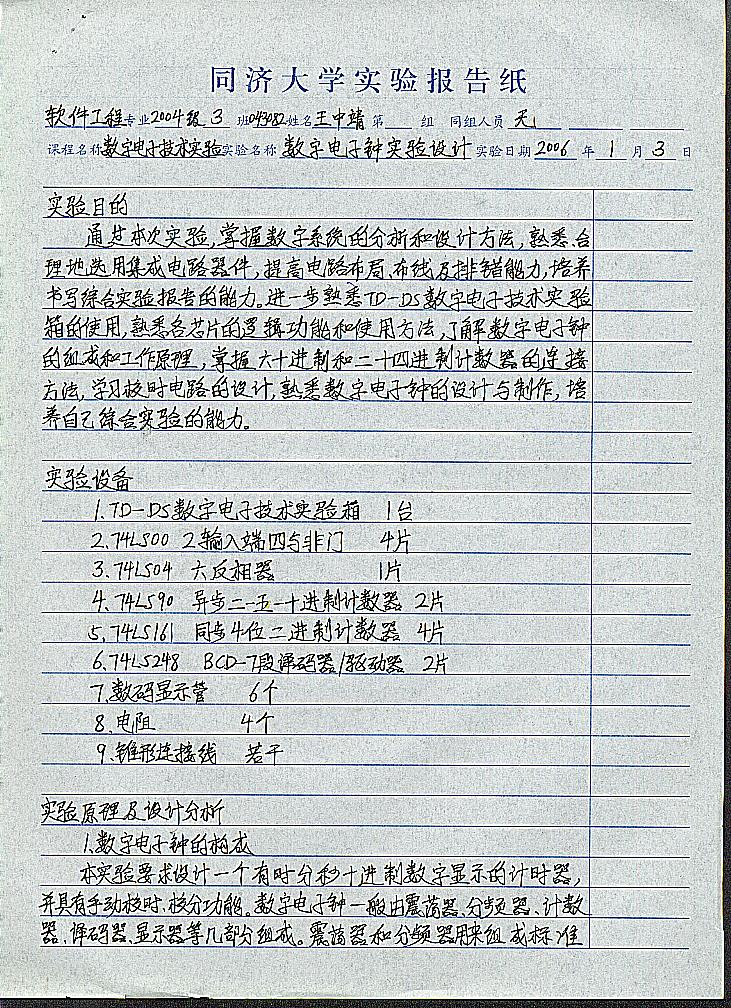 同济大学实验报告纸
软件工程专业2004级3班043082姓名王中靖 第 组 同组人员 无
课程名称数字电子技术实验实验名称 数字电子钟实验设计 实验日期2006年1月3日
实验目的
通过本次实验,掌握数字系统的分析和设计方法,熟悉、合
理地选用集成电路器件,提高电路布局、布线及排错能力,培养
书写综合实验报告的能力。进一步熟悉TD-DS数字电子技术实验
箱的使用,熟悉各芯片的逻辑功能和使用方法,了解数字电子钟
的组成和工作原理,掌握六十进制和二十四进制计数器的连接
方法,学习校时电路的设计,熟悉数字电子钟的设计与制作,培
养自己综合实验的能力。
实验设备
1.TD-DS数字电子技术实验箱 1台
2.74LS00 2输入端四与非门 4片
3.74LS04 六反相器 1片
4.74LS90 异步二-五-十进制计数器 2片
5.74LS161 同步4位二进制计数器 4片
6.74LS248 BCD-7段译码器/驱动器 2片
7.数码显示管 6个
8.电阻 4个
9.锥形连接线 若干
实验原理及设计分析
1.数字电子钟的构成
本实验要求设计一个有时分秒十进制数字显示的计时器,
并具有手动校时、校分功能。数字电子钟一般由震荡器、分频器、计数
器、译码器、显示器等几部分组成。震荡器和分频器用来组成标准